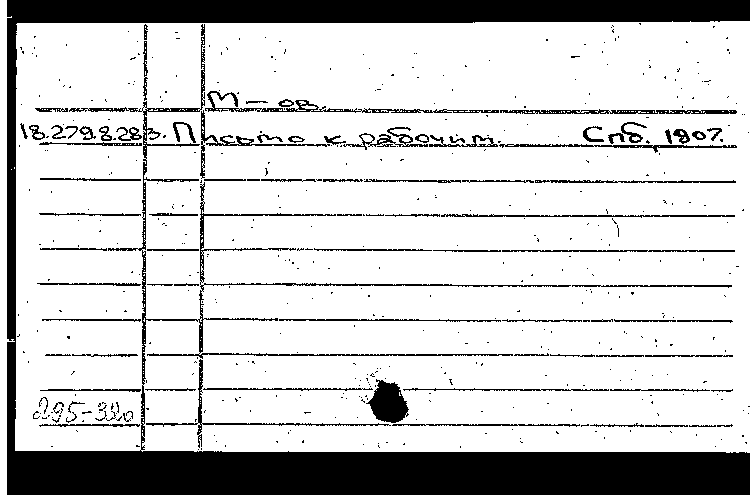 М-ов.
18.279.8.283. Письмо к рабочим. Спб. 1907.
295-320